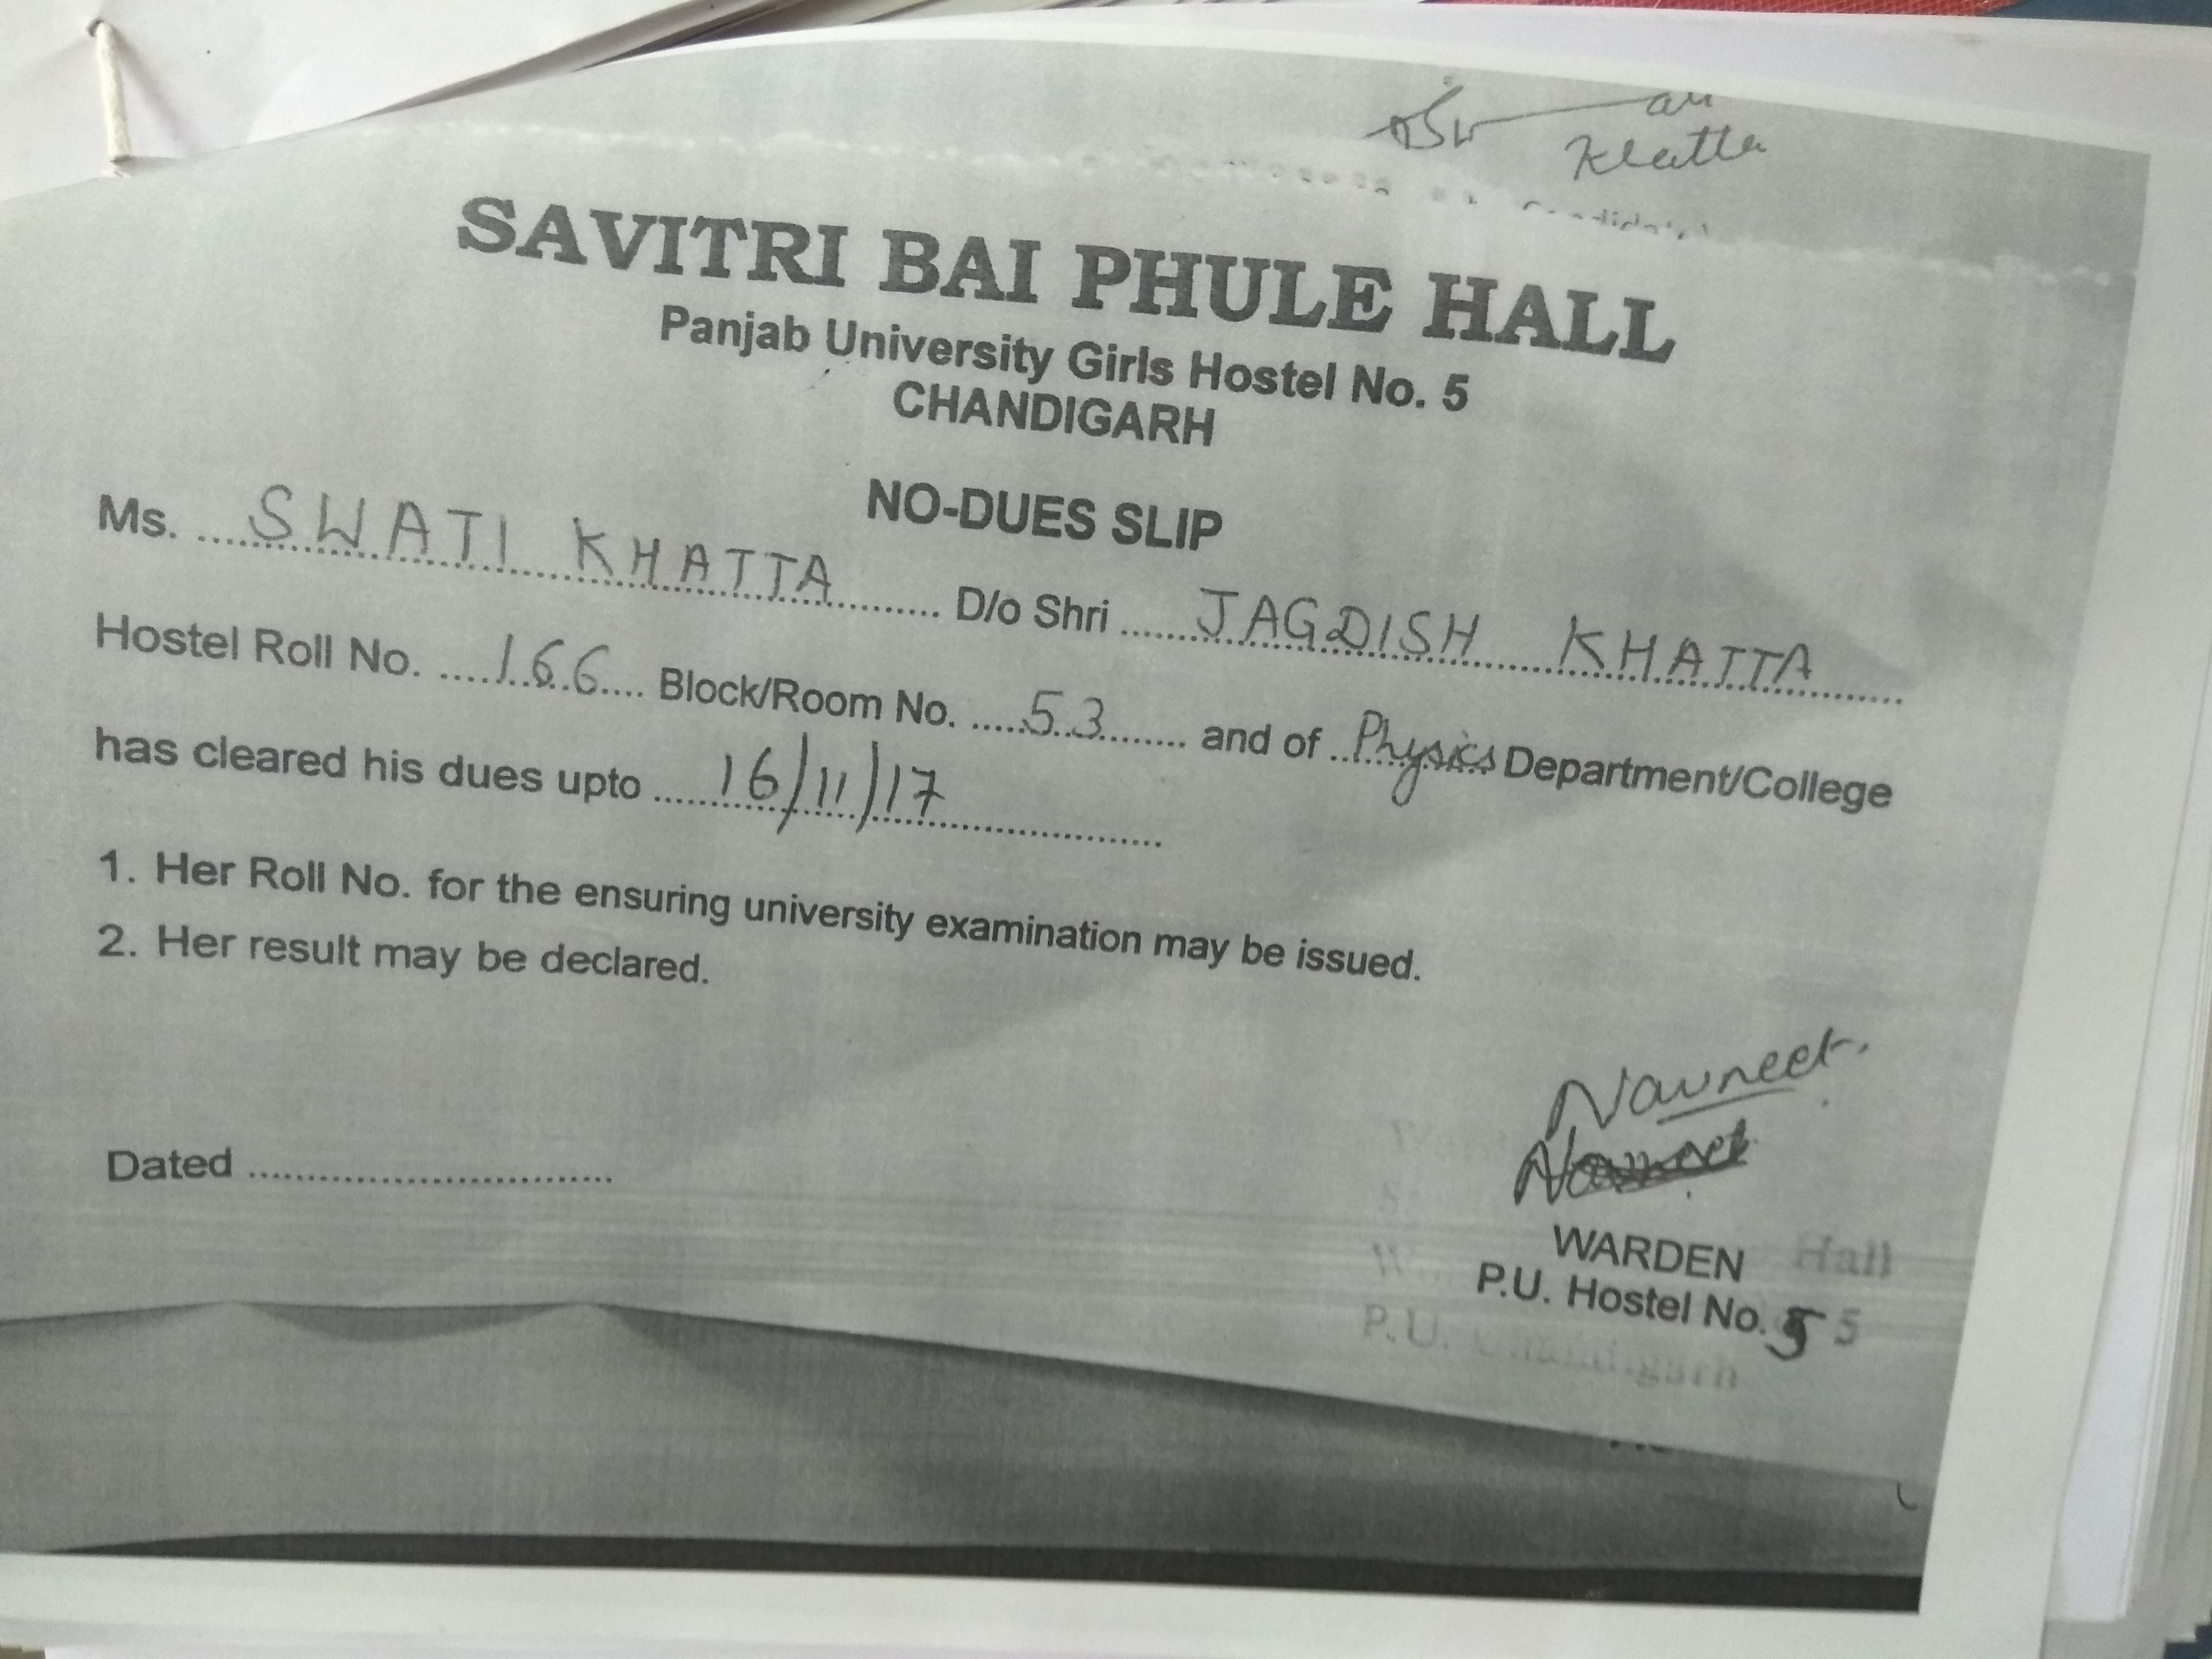 Khatta
SAVITRI BAI PHULE HALL
Panjab University Girls Hostel No. 5
CHANDIGARH
NO-DUES SLIP
Ms. SWATI KHATTA D/o Shri JAGDISH KHATTA
Hostel Roll No. 166 Block/Room No. 53 and of Physics Department/College
has cleared his dues upto 16/11/17
1. Her Roll No. for the ensuring university examination may be issued.
2. Her result may be declared.
Navneet.
Navneet
Dated
WARDEN
Hall
P.U. Hostel No. 5 5
P.U. Chandigarh